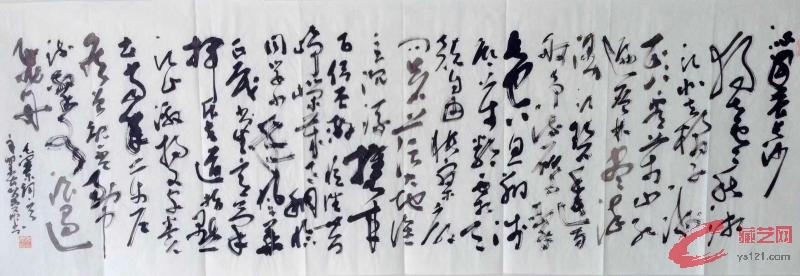 沁园春长沙
独立寒秋湘
江北去橘子洲
头看万山红
遍层林尽染
漫江碧透百
舸争流鹰击
长空鱼翔浅
底万类霜天
竞自由怅寥廓
问苍茫大地谁
主沉浮携来
百侣曾游忆往昔
峥嵘岁月稠恰
同学少年风华
正茂书生意气
挥斥方遒指点
江山激扬文字粪
土当年万户
侯曾记否到中
流击水浪遏
飞舟
藏艺网
ys121.com